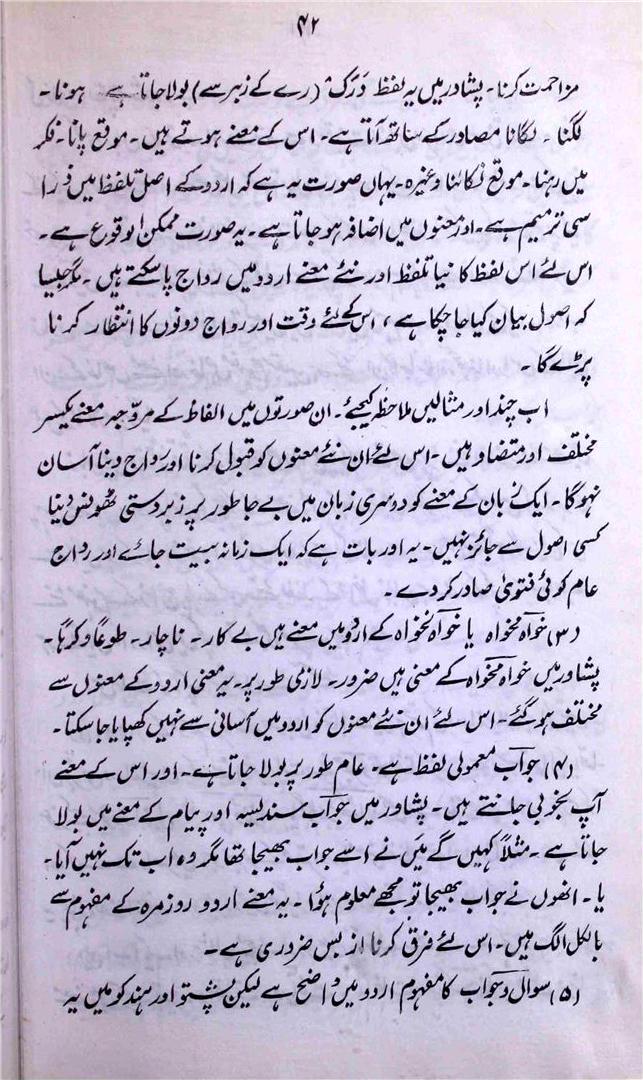 ۴۲
مزاحمت کرنا ۔ پشاور میں یہ لفظ دَرَک (رے کے زبر سے) بولا جاتا ہے ہونا ۔
لگنا ۔ لگانا مصادر کے ساتھ آتا ہے ۔ اس کے معنے ہوتے ہیں ۔ موقع پانا ۔ فکر
میں رہنا ۔ موقع نکالنا وغیرہ ۔ یہاں صورت یہ ہے کہ اردو کے اصل تلفظ میں ذرا
سی ترمیم ہے ۔ اور معنوں میں اضافہ ہو جاتا ہے ۔ یہ صورت ممکن الوقوع ہے ۔
اس لئے اس لفظ کا نیا تلفظ اور نئے معنے اردو میں رواج پا سکتے ہیں ۔ مگر جیسا
کہ اصول بیان کیا جا چکا ہے ، اس کے لئے وقت اور رواج دونوں کا انتظار کرنا
پڑے گا ۔
اب چند اور مثالیں ملاحظہ کیجئے ۔ ان صورتوں میں الفاظ کے مروّجہ معنے یکسر
مختلف اور متضاد ہیں ۔ اس لئے ان نئے معنوں کو قبول کرنا اور رواج دینا آسان
نہوگا ۔ ایک زبان کے معنے کو دوسری زبان میں بے جا طور پر زبردستی ٹھونس دینا
کسی اصول سے جائز نہیں ۔ یہ اور بات ہے کہ ایک زمانہ بیت جائے اور رواج
عام کوئی فتویٰ صادر کر دے ۔
(۳) خواہ مخواہ یا خواہ نخواہ کے اردو میں معنے ہیں بے کار ۔ ناچار ۔ طوعاً و کرہاً ۔
پشاور میں خواہ مخواہ کے معنی ہیں ضرور ۔ لازمی طور پر ۔ یہ معنی اردو کے معنوں سے
مختلف ہو گئے ۔ اس لئے ان نئے معنوں کو اردو میں آسانی سے نہیں کھپایا جا سکتا ۔
(۴) جواب معمولی لفظ ہے ۔ عام طور پر بولا جاتا ہے ۔ اور اس کے معنے
آپ بخوبی جانتے ہیں ۔ پشاور میں جواب سندیسہ اور پیام کے معنے میں بولا
جاتا ہے ۔ مثلاً کہیں گے میں نے اسے جواب بھیجا تھا مگر وہ اب تک نہیں آیا ۔
یا ۔ انھوں نے جواب بھیجا تو مجھے معلوم ہؤا ۔ یہ معنے اردو روزمرہ کے مفہوم سے
بالکل الگ ہیں ۔ اس لئے فرق کرنا از بس ضروری ہے ۔
(۵) سوال و جواب کا مفہوم اردو میں واضح ہے لیکن پشتو اور ہندکو میں یہ